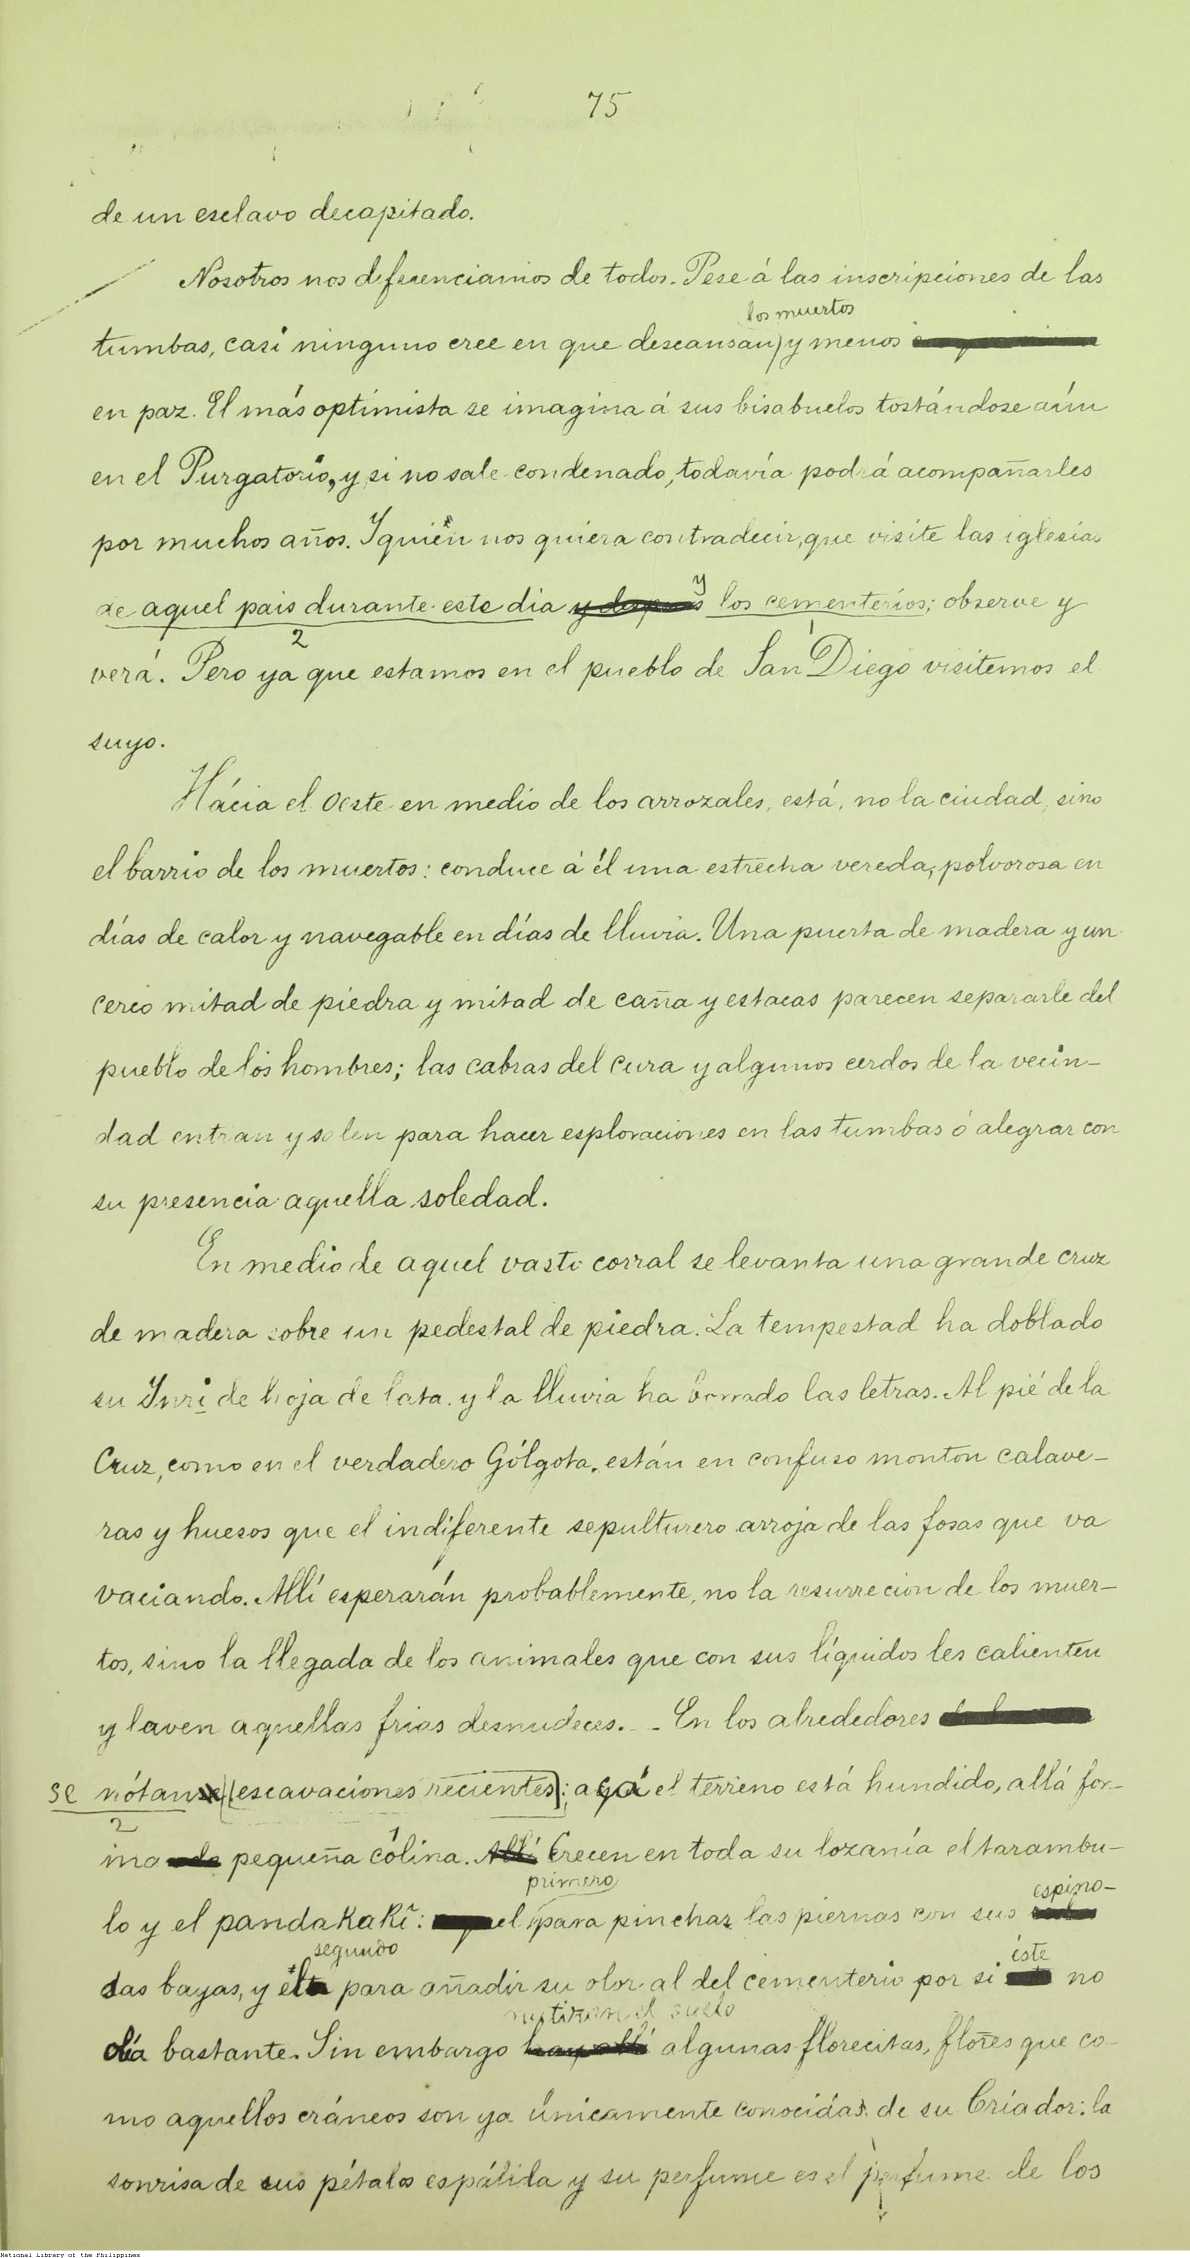 75
de un esclavo decapitado.
Nosotros nos diferenciamos de todos. Pese á las inscripciones de las
los muertos
tumbas, casi ninguno cree en que descansan y menos
en paz. El más optimista se imagina á sus bisabuelos tostándose aún
en el Purgatorio, y si no sale condenado, todavía podrá acompañarles
por muchos años. Y quien nos quiera contradecir, que visite las iglesias
y
de aquel pais durante este dia los cementerios; observe y
2 1
verá. Pero ya que estamos en el pueblo de San Diego visitemos el
suyo.
Hácia el Oeste en medio de los arrozales, está, no la ciudad, sino
el barrio de los muertos: conduce á él una estrecha vereda, polvorosa en
días de calor y navegable en días de lluvia. Una puerta de madera y un
cerco mitad de piedra y mitad de caña y estacas parecen separarle del
pueblo de los hombres; las cabras del cura y algunos cerdos de la vecin-
dad entran y salen para hacer esploraciones en las tumbas ó alegrar con
su presencia aquella soledad.
En medio de aquel vasto corral se levanta una grande cruz
de madera sobre un pedestal de piedra. La tempestad ha doblado
su Inri de hoja de lata y la lluvia ha borrado las letras. Al pié de la
Cruz, como en el verdadero Gólgota, están en confuso monton calave-
ras y huesos que el indiferente sepulturero arroja de las fosas que va
vaciando. Allí esperarán probablemente, no la resurrecion de los muer-
tos, sino la llegada de los animales que con sus líquidos les calienten
y laven aquellas frias desnudeces. - En los alrededores
se nótan [escavaciones recientes]; acá el terreno está hundido, allá for-
2 1
ma pequeña colina. Allí Crecen en toda su lozanía el tarambu-
primero espino-
lo y el pandakaki: el para pinchar las piernas con sus
segundo éste
sas bayas, y él para añadir su olor al del cementerio por si no
matizan el suelo
olía bastante. Sin embargo hay allí algunas florecitas, flores que co-
mo aquellos cráneos son ya únicamente conocidas de su Criador: la
sonrisa de sus pétalos es pálida y su perfume es el perfume de los
National Library of the Philippines